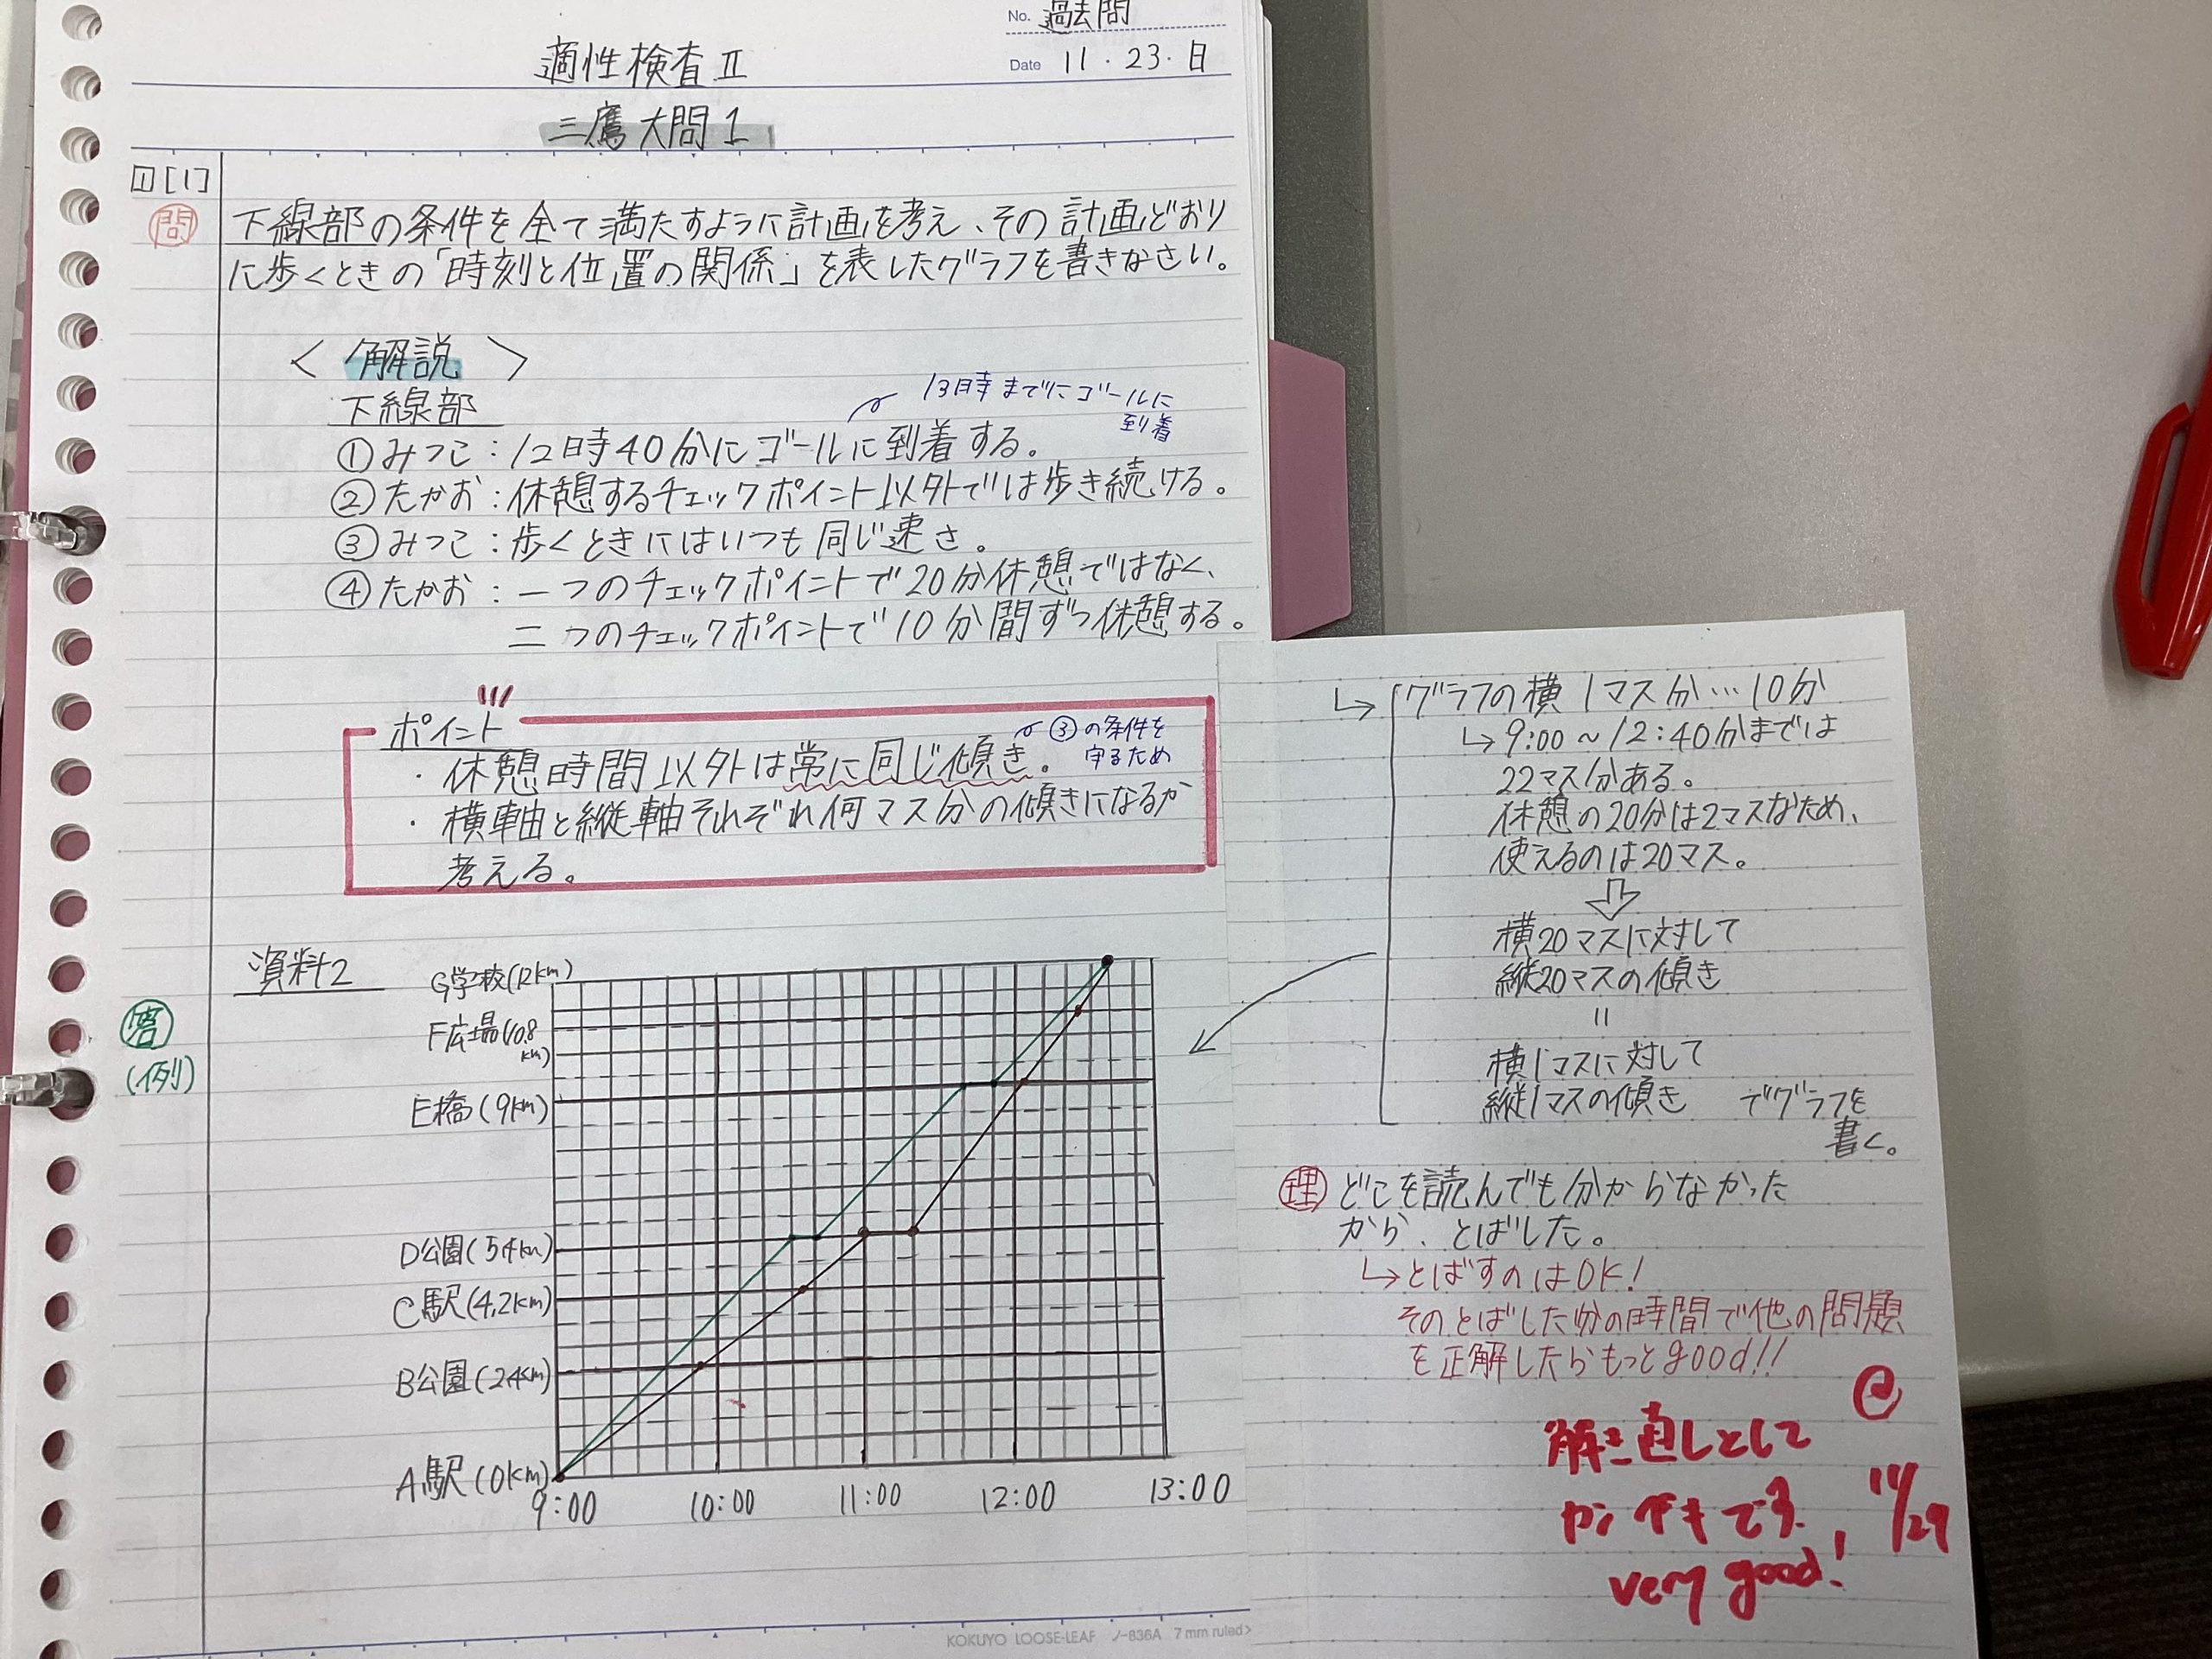 No. 過去問
適性検査Ⅱ
Date 11・23・日
三鷹 大問1
1[1]
問 下線部の条件を全て満たすように計画を考え、その計画どおり
に歩くときの「時刻と位置の関係」を表したグラフを書きなさい。
<解説>
下線部
13時までにゴールに
到着
①みつこ:12時40分にゴールに到着する。
②たかお:休憩するチェックポイント以外では歩き続ける。
③みつこ:歩くときにはいつも同じ速さ。
④たかお:一つのチェックポイントで20分休憩ではなく、
二つのチェックポイントで10分間ずつ休憩する。
ポイント
・休憩時間以外は常に同じ傾き。
③の条件を
守るため
・横軸と縦軸それぞれ何マス分の傾きになるか
考える。
資料2
答
(例)
G学校(12km)
F広場(10.8
km)
E橋(9km)
D公園(5.4km)
C駅(4.2km)
B公園(2.4km)
A駅(0km)
9:00 10:00 11:00 12:00 13:00
↳グラフの横1マス分…10分
↳9:00~12:40分までは
22マス分ある。
休憩の20分は2マスなため、
使えるのは20マス。
⇩
横20マスに対して
縦20マスの傾き
=
横1マスに対して
縦1マスの傾き でグラフを
書く。
理 どこを読んでも分からなかった
から、とばした。
↳とばすのはOK!
そのとばした分の時間で他の問題
を正解したらもっとgood!!
解き直しとして
カンペキです。
very good!
11/29
KOKUYO LOOSE-LEAF ノ-836A 7 mm ruled